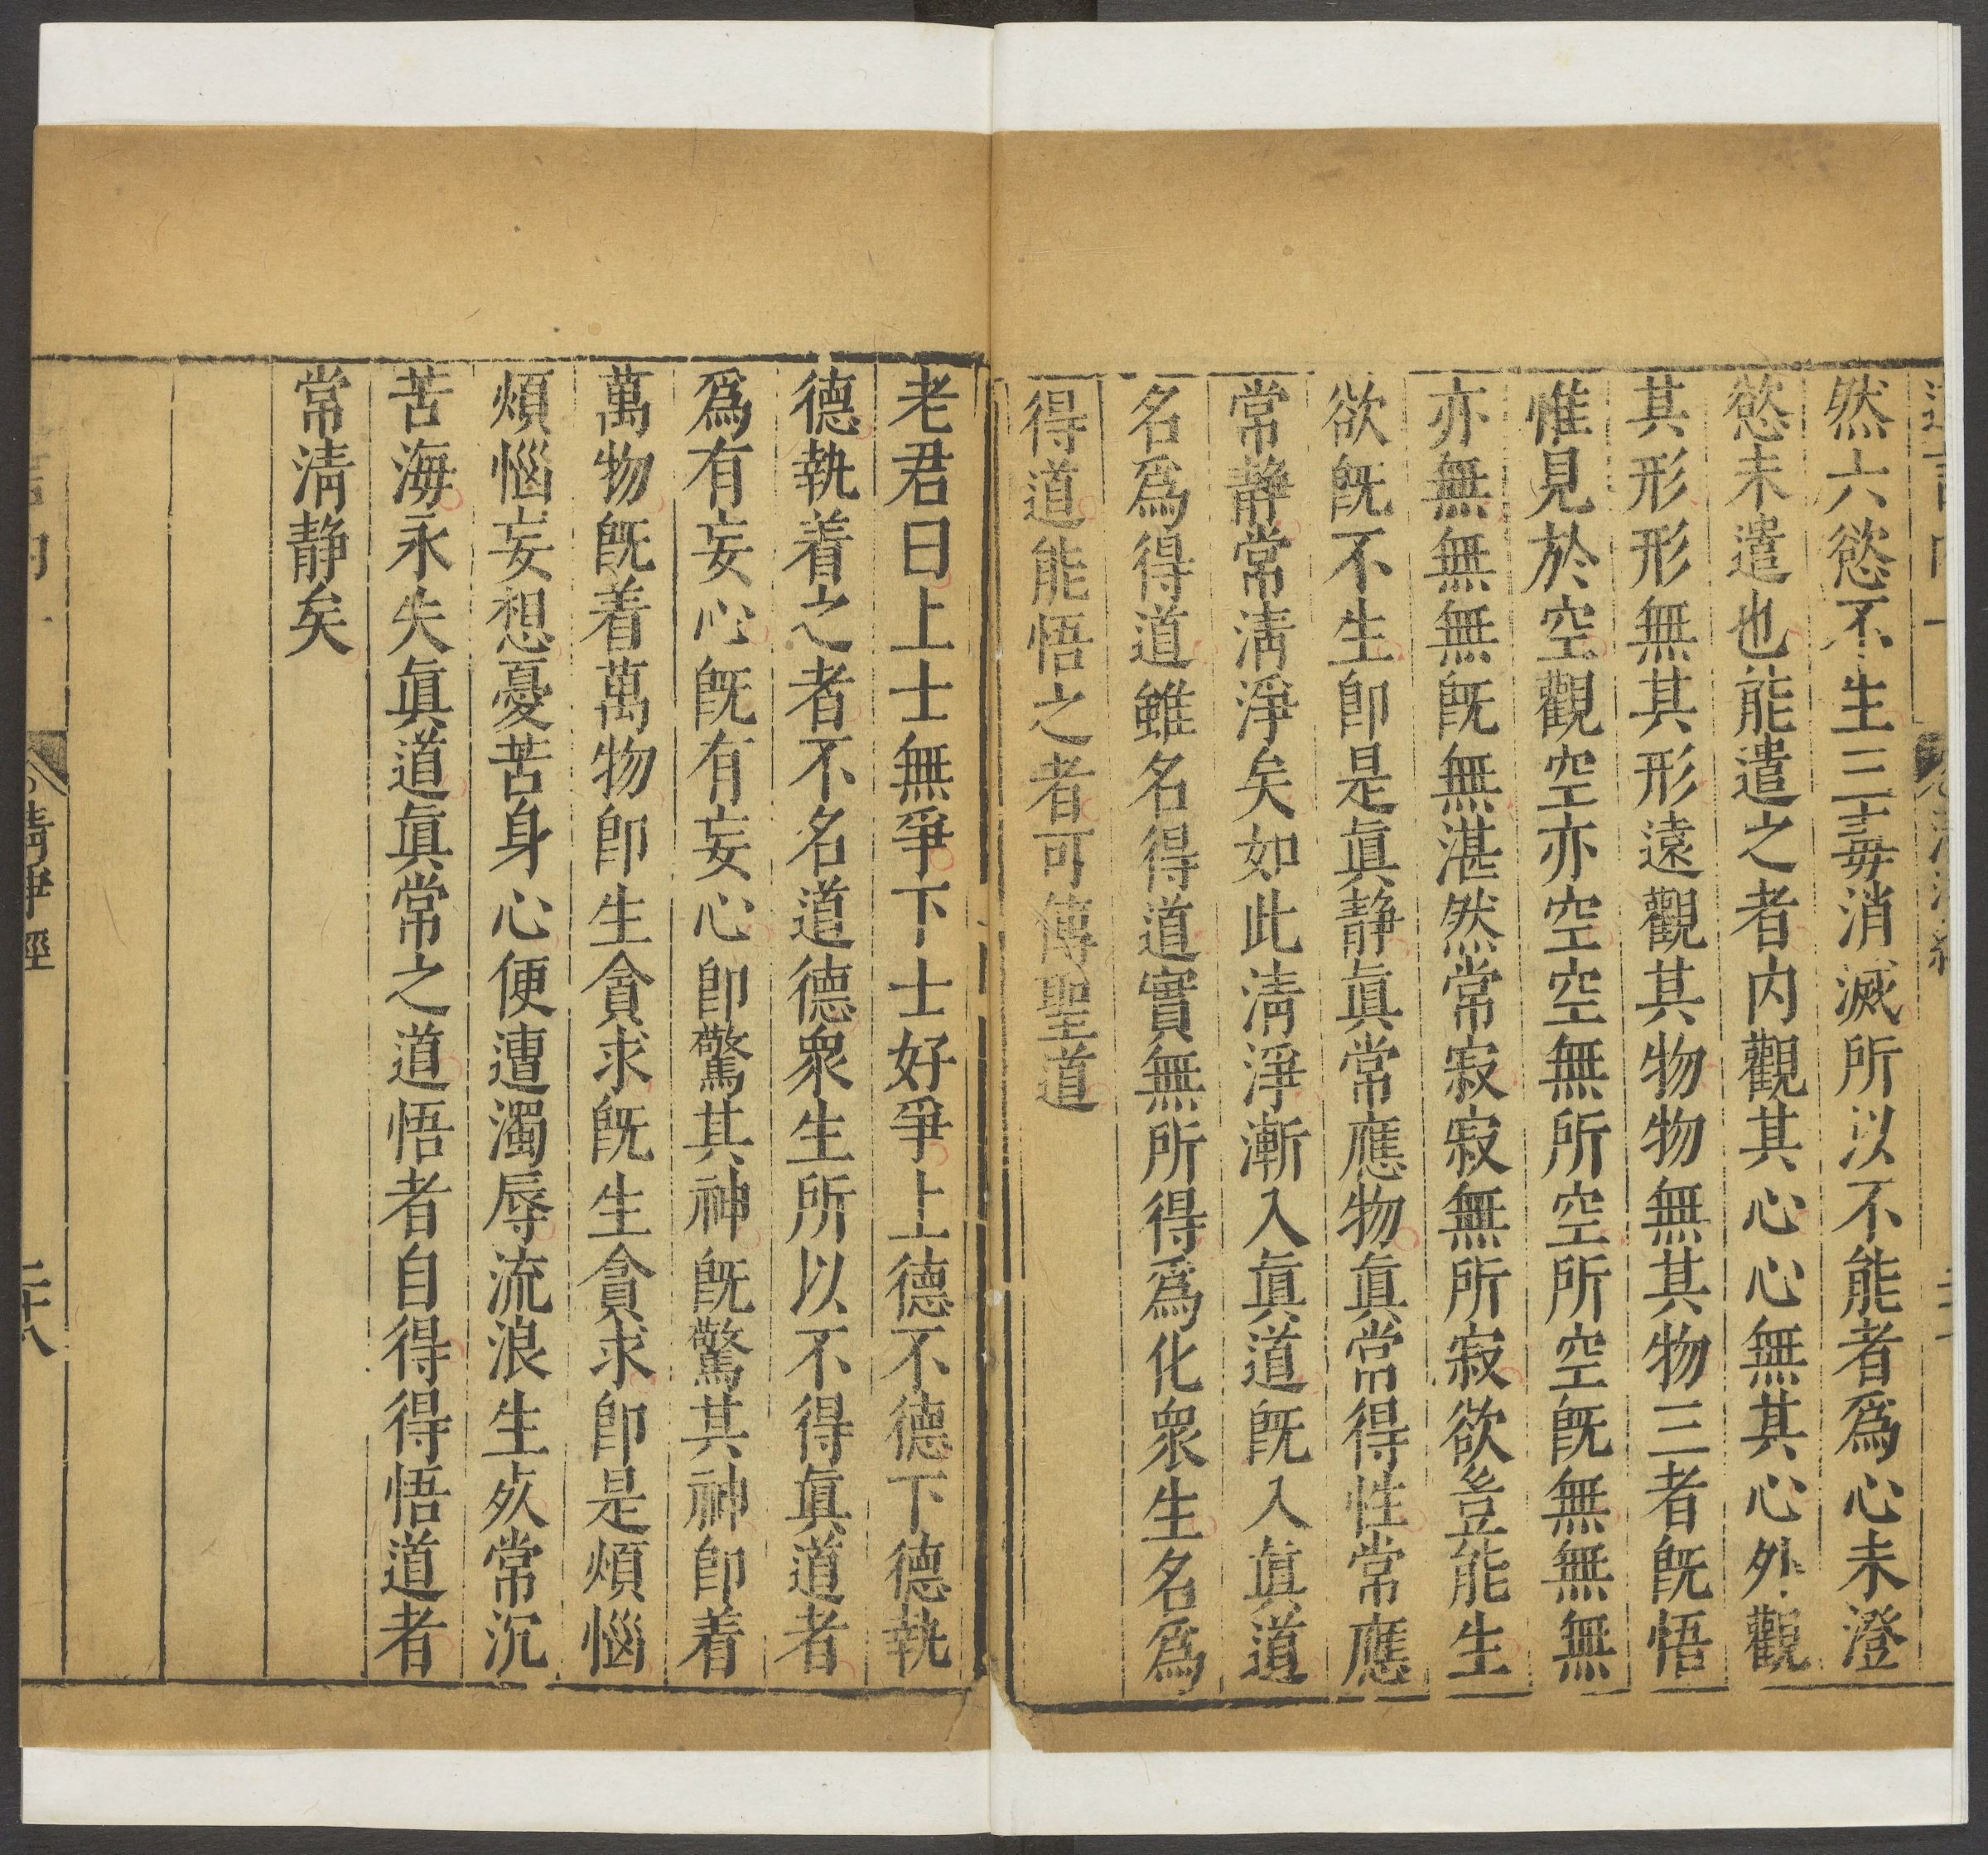 然六慾不生三毒消滅所以不能者爲心未澄
慾未遣也能遣之者内觀其心心無其心外觀
其形形無其形遠觀其物物無其物三者旣悟
惟見於空觀空亦空空無所空所空旣無無無
亦無無無旣無湛然常寂寂無所寂欲豈能生
欲旣不生卽是眞静眞常應物眞常得性常應
常静常淸淨矣如此淸淨漸入眞道旣入眞道
名爲得道雖名得道實無所得爲化衆生名爲
得道能悟之者可傳聖道
老君曰上士無爭下士好爭上德不德下德執
德執着之者不名道德衆生所以不得眞道者
爲有妄心旣有妄心卽驚其神旣驚其神卽着
萬物旣着萬物卽生貪求旣生貪求卽是煩惱
煩惱妄想憂苦身心便遭濁辱流浪生死常沉
苦海永失眞道眞常之道悟者自得得悟道者
常淸静矣
淸靜經
二十八